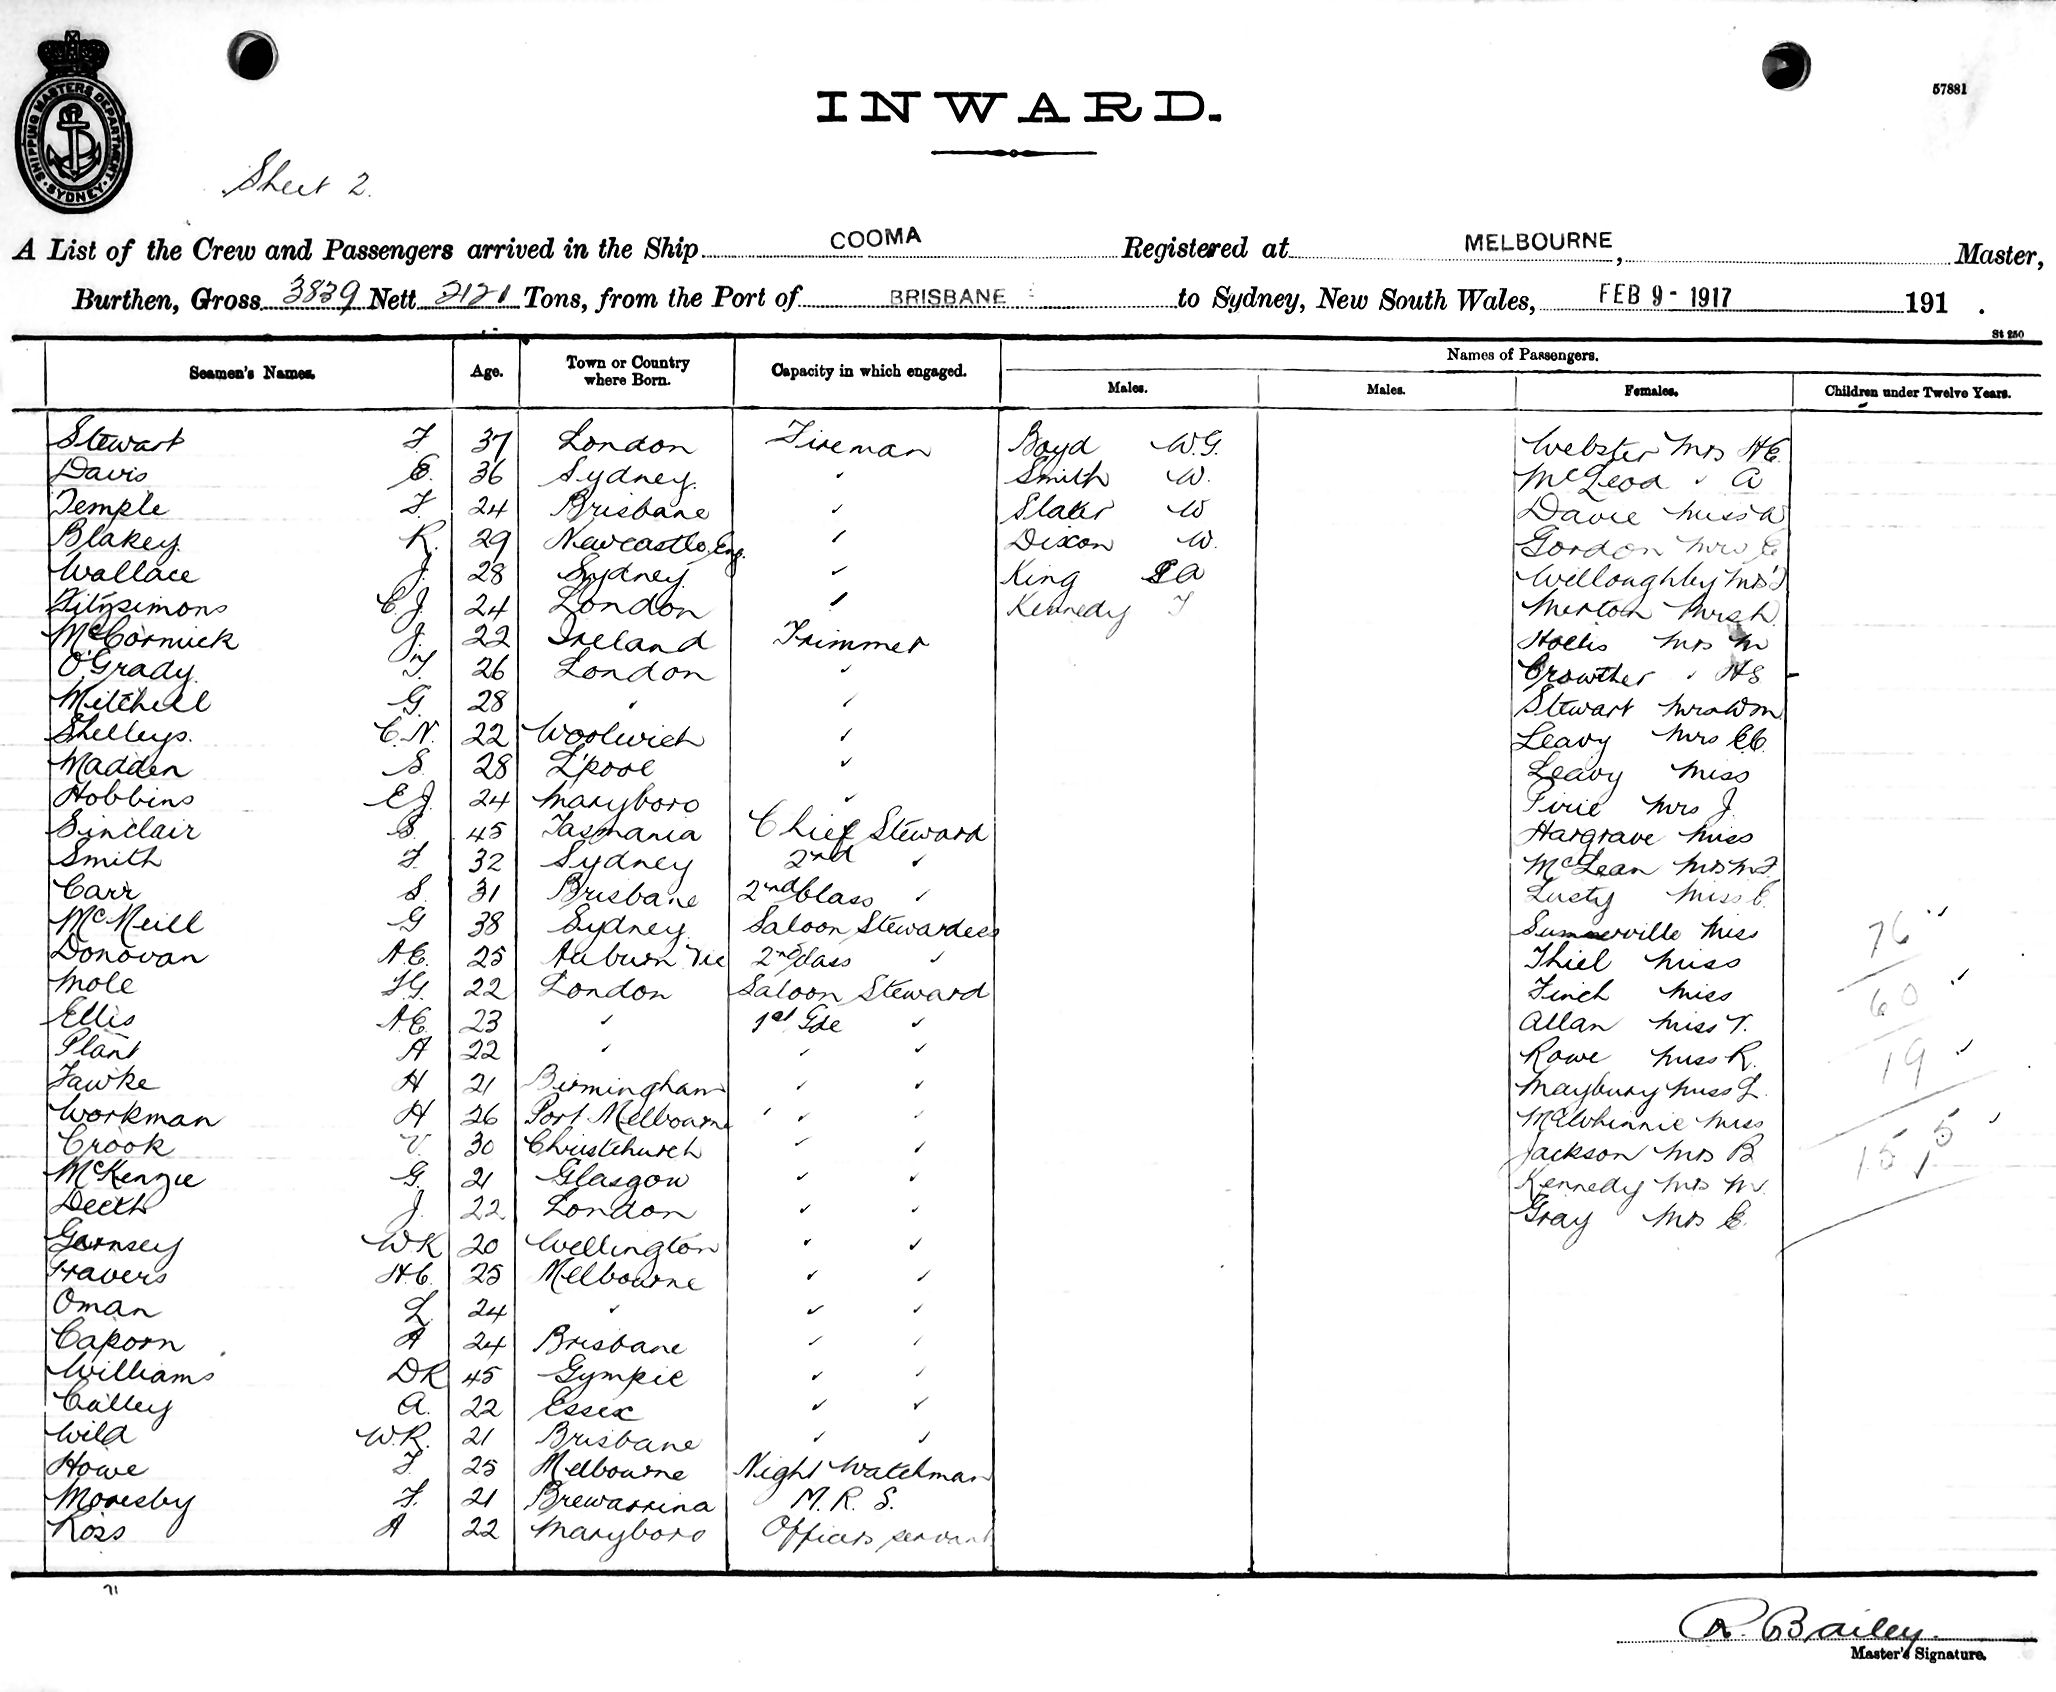 SHIPPING MASTERS DEPARTMENT
SYDNEY
INWARD.
57881
Sheet 2.
A List of the Crew and Passengers arrived in the Ship COOMA Registered at MELBOURNE, Master,
Burthen, Gross 3839 Nett 2121 Tons, from the Port of BRISBANE to Sydney, New South Wales, FEB 9 - 1917 191 .
St 250
Seamen's Names. Age. Town or Country where Born. Capacity in which engaged. Names of Passengers.
Males. Males. Females. Children under Twelve Years.
Stewart F 37 London Fireman Boyd W.G. Webster Mrs H.C.
Davis E. 36 Sydney. " Smith W. McLeod " A
Temple F 24 Brisbane " Slater W Davie Miss W
Blakey. R. 29 Newcastle, Eng. " Dixon W. Gordon Mrs C
Wallace J. 28 Sydney " King A Willoughby Mrs J
Fitzsimons C J. 24 London " Kennedy T Merton Miss L.
McCormick J. 22 Ireland Trimmer Hollis Mrs M
O'Grady. 26 London " Crowther " H S
Mitchell G. 28 " " Stewart Mrs W M
Shelleys. C. N. 22 Woolwich " Leavy Mrs C.C.
Madden S. 28 L'pool " Leavy Miss
Hobbins E J. 24 Maryboro " Pirie Mrs J.
Sinclair S. 45 Tasmania Chief Steward Hargrave Miss
Smith F. 32 Sydney 2nd " McLean Mrs M. J.
Carr S. 31 Brisbane 2nd Class " Lusty Miss C.
McNeill G 38 Sydney. Saloon Stewardess Summerville Miss
Donovan A.C. 25 Auburn Vic 2nd class " Thiel Miss
76 "
Mole F.G. 22 London Saloon Steward Finch Miss
60 "
Ellis A.C. 23 " 1st Gde " Allan Miss V.
Plant A 22 " " " Rowe Miss R.
19 "
Fawke H 21 Birmingham " " Maybury Miss L.
Workman H 26 Port Melbourne " " McWhinnie Miss
155 "
Crook V. 30 Christchurch " " Jackson Mrs B
McKenzie G. 21 Glasgow " " Kennedy Mrs M.
Deeth J. 22 London " " Gray Mrs C.
Garnsey W K 20 Wellington " "
Travers H.C. 25 Melbourne " "
Oman L 24 " " "
Caporn A 24 Brisbane " "
Williams D R 45 Gympie " "
Calley A. 22 Essex " "
Wild W. R. 21 Brisbane " "
Howe F 25 Melbourne Night Watchman
Moresby F. 21 Brewarrina M. R. S.
Ross A 22 Maryboro Officers servant
71
R. Bailey.
Master's Signature.